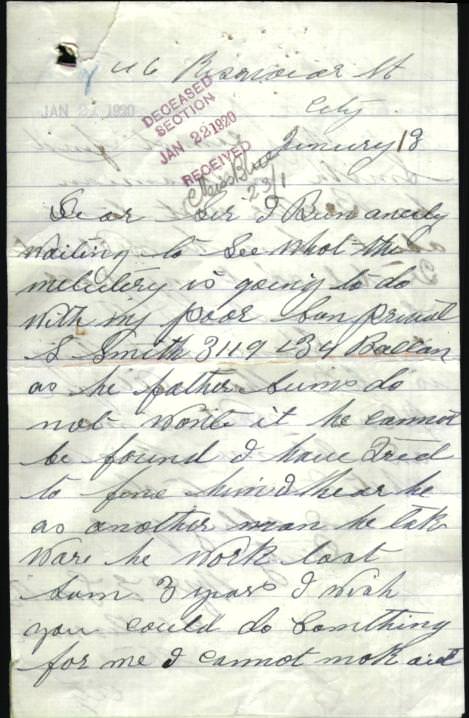 46 St
City
JAN 21 1920
DECEASED
SECTION
JAN 22 1920
RECEIVED
Miss
23/1
Jenury 18
Dear Sir I Ben
waiting to See What the
meletery is going to do
With my poor Son privat
S Smith 3119 34 Battan
as he father Sums do
not Wonte it he cannot
be found I have Tred
to fine him I hear he
as another man he tak
Ware he Work last
Sum 3 years I Wish
you could do Something
for me I cannot mak aut